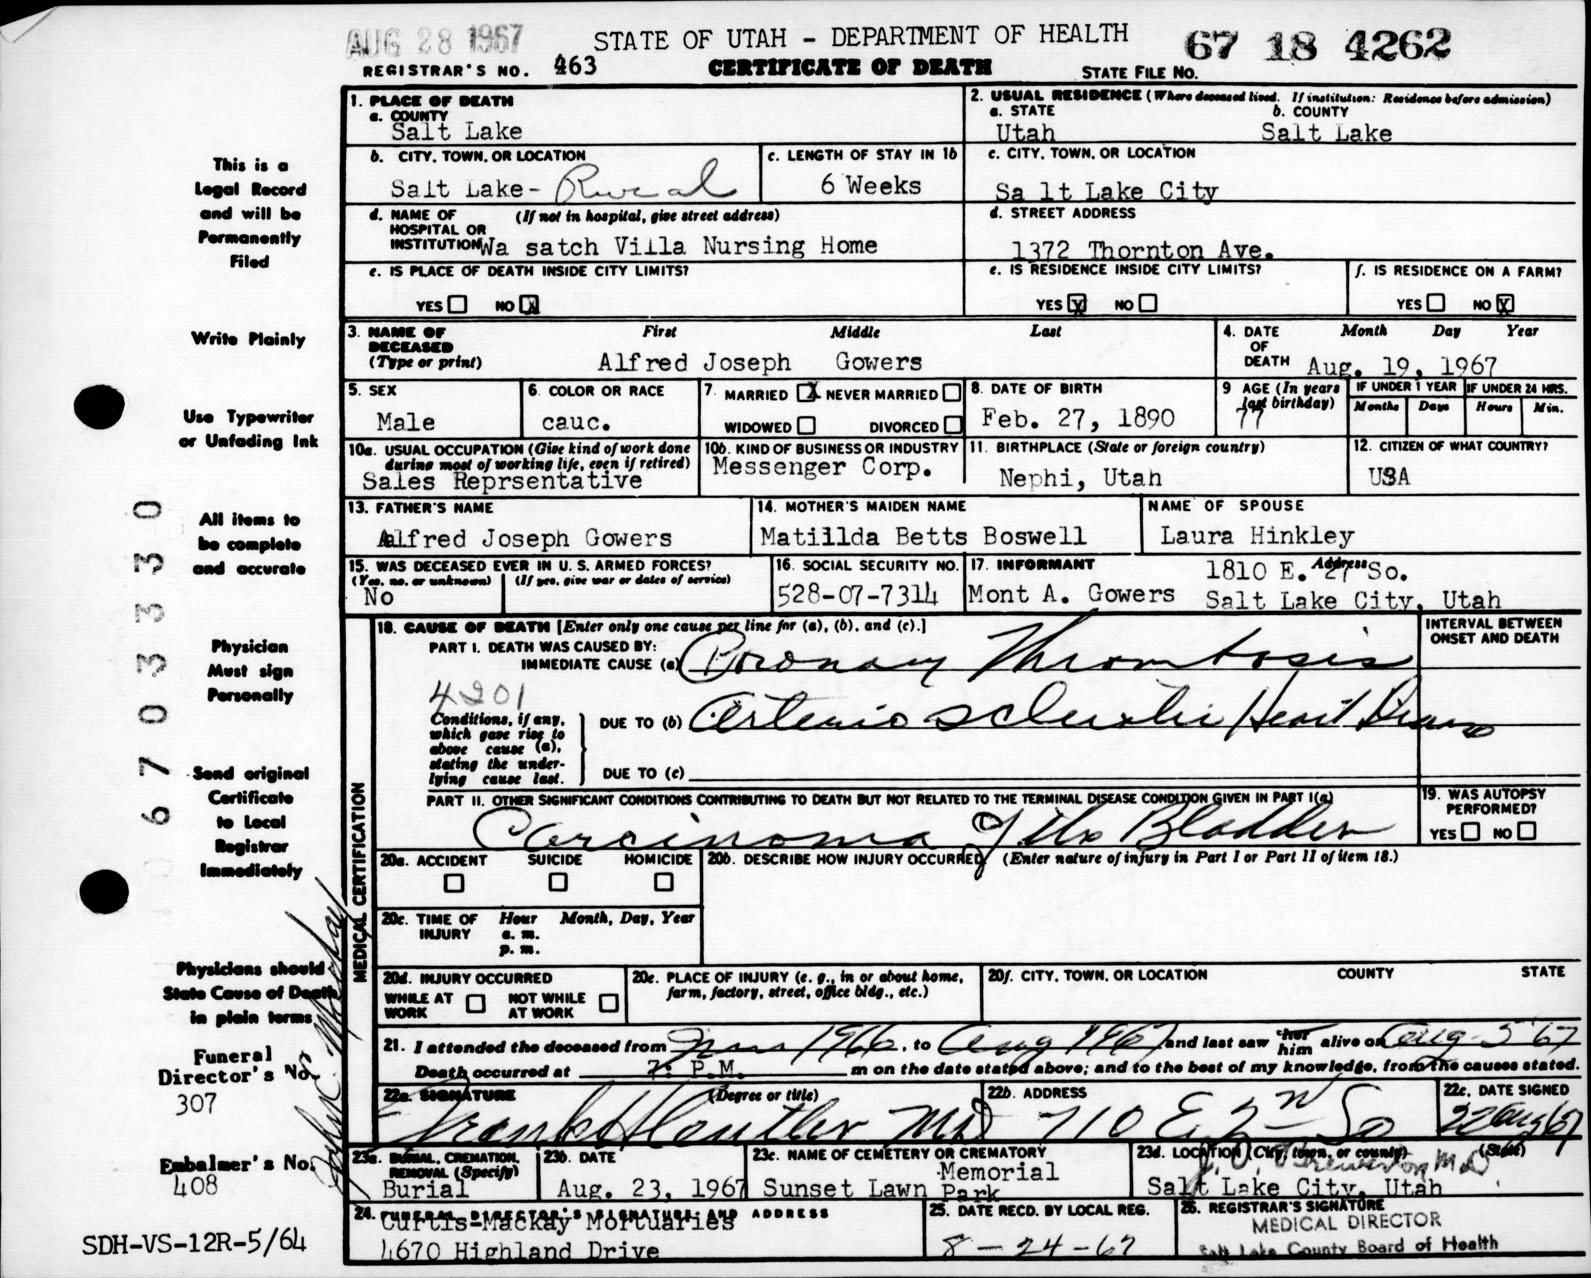 AUG 28 1967
STATE OF UTAH - DEPARTMENT OF HEALTH
67 18 4262
REGISTRAR'S NO. 463
CERTIFICATE OF DEATH
STATE FILE NO.
This is a
Legal Record
and will be
Permanently
Filed
Write Plainly
Use Typewriter
or Unfading Ink
All items to
be complete
and accurate
Physician
Must sign
Personally
Send original
Certificate
to Local
Registrar
Immediately
Physicians should
State Cause of Death
in plain terms
Funeral
Director's No.
307
Embalmer's No.
408
SDH-VS-12R-5/64
67033330
1. PLACE OF DEATH
a. COUNTY
Salt Lake
2. USUAL RESIDENCE (Where deceased lived. If institution: Residence before admission)
a. STATE b. COUNTY
Utah Salt Lake
b. CITY, TOWN, OR LOCATION
Salt Lake- Rural
c. LENGTH OF STAY IN 1b
6 Weeks
c. CITY, TOWN, OR LOCATION
Sa lt Lake City
d. NAME OF (If not in hospital, give street address)
HOSPITAL OR
INSTITUTION Wa satch Villa Nursing Home
d. STREET ADDRESS
1372 Thornton Ave.
e. IS PLACE OF DEATH INSIDE CITY LIMITS?
YES NO X
e. IS RESIDENCE INSIDE CITY LIMITS?
YES X NO
f. IS RESIDENCE ON A FARM?
YES NO X
3. NAME OF First Middle Last
DECEASED
(Type or print) Alfred Joseph Gowers
4. DATE Month Day Year
OF
DEATH Aug. 19, 1967
5. SEX
Male
6. COLOR OR RACE
cauc.
7. MARRIED X NEVER MARRIED
WIDOWED DIVORCED
8. DATE OF BIRTH
Feb. 27, 1890
9 AGE (In years
last birthday)
77
IF UNDER 1 YEAR IF UNDER 24 HRS.
Months Days Hours Min.
10a. USUAL OCCUPATION (Give kind of work done
during most of working life, even if retired)
Sales Reprsentative
10b. KIND OF BUSINESS OR INDUSTRY
Messenger Corp.
11. BIRTHPLACE (State or foreign country)
Nephi, Utah
12. CITIZEN OF WHAT COUNTRY?
USA
13. FATHER'S NAME
Alfred Joseph Gowers
14. MOTHER'S MAIDEN NAME
Matillda Betts Boswell
NAME OF SPOUSE
Laura Hinkley
15. WAS DECEASED EVER IN U. S. ARMED FORCES?
(Yes, no, or unknown) (If yes, give war or dates of service)
No
16. SOCIAL SECURITY NO.
528-07-7314
17. INFORMANT Address
Mont A. Gowers
1810 E. 27 So.
Salt Lake City, Utah
MEDICAL CERTIFICATION
18. CAUSE OF DEATH [Enter only one cause per line for (a), (b), and (c).]
INTERVAL BETWEEN
ONSET AND DEATH
PART I. DEATH WAS CAUSED BY:
IMMEDIATE CAUSE (a) Coronary Thrombosis
4201
Conditions, if any,
which gave rise to
above cause (a),
stating the under-
lying cause last.
DUE TO (b) Arteriosclerotic Heart Disease
DUE TO (c)
PART II. OTHER SIGNIFICANT CONDITIONS CONTRIBUTING TO DEATH BUT NOT RELATED TO THE TERMINAL DISEASE CONDITION GIVEN IN PART I(a)
Carcinoma of the Bladder
19. WAS AUTOPSY
PERFORMED?
YES NO
20a. ACCIDENT SUICIDE HOMICIDE
20b. DESCRIBE HOW INJURY OCCURRED (Enter nature of injury in Part I or Part II of item 18.)
20c. TIME OF Hour Month, Day, Year
INJURY a. m.
p. m.
20d. INJURY OCCURRED
WHILE AT WORK NOT WHILE AT WORK
20e. PLACE OF INJURY (e. g., in or about home,
farm, factory, street, office bldg., etc.)
20f. CITY, TOWN, OR LOCATION COUNTY STATE
21. I attended the deceased from 1966, to Aug 1967 and last saw her him alive on Aug 5 '67
Death occurred at 7: P.M. m on the date stated above; and to the best of my knowledge, from the causes stated.
22a. SIGNATURE (Degree or title)
Frank MD
22b. ADDRESS
710 E 2nd So
22c. DATE SIGNED
22 Aug 67
23a. BURIAL, CREMATION,
REMOVAL (Specify)
Burial
23b. DATE
Aug. 23, 1967
23c. NAME OF CEMETERY OR CREMATORY
Sunset Lawn Memorial Park
23d. LOCATION (City, town, or county) (State)
Salt Lake City, Utah
24. FUNERAL DIRECTOR'S SIGNATURE AND ADDRESS
Curtis-Mackay Mortuaries
4670 Highland Drive
25. DATE RECD. BY LOCAL REG.
8-24-67
26. REGISTRAR'S SIGNATURE
MEDICAL DIRECTOR
Salt Lake County Board of Health